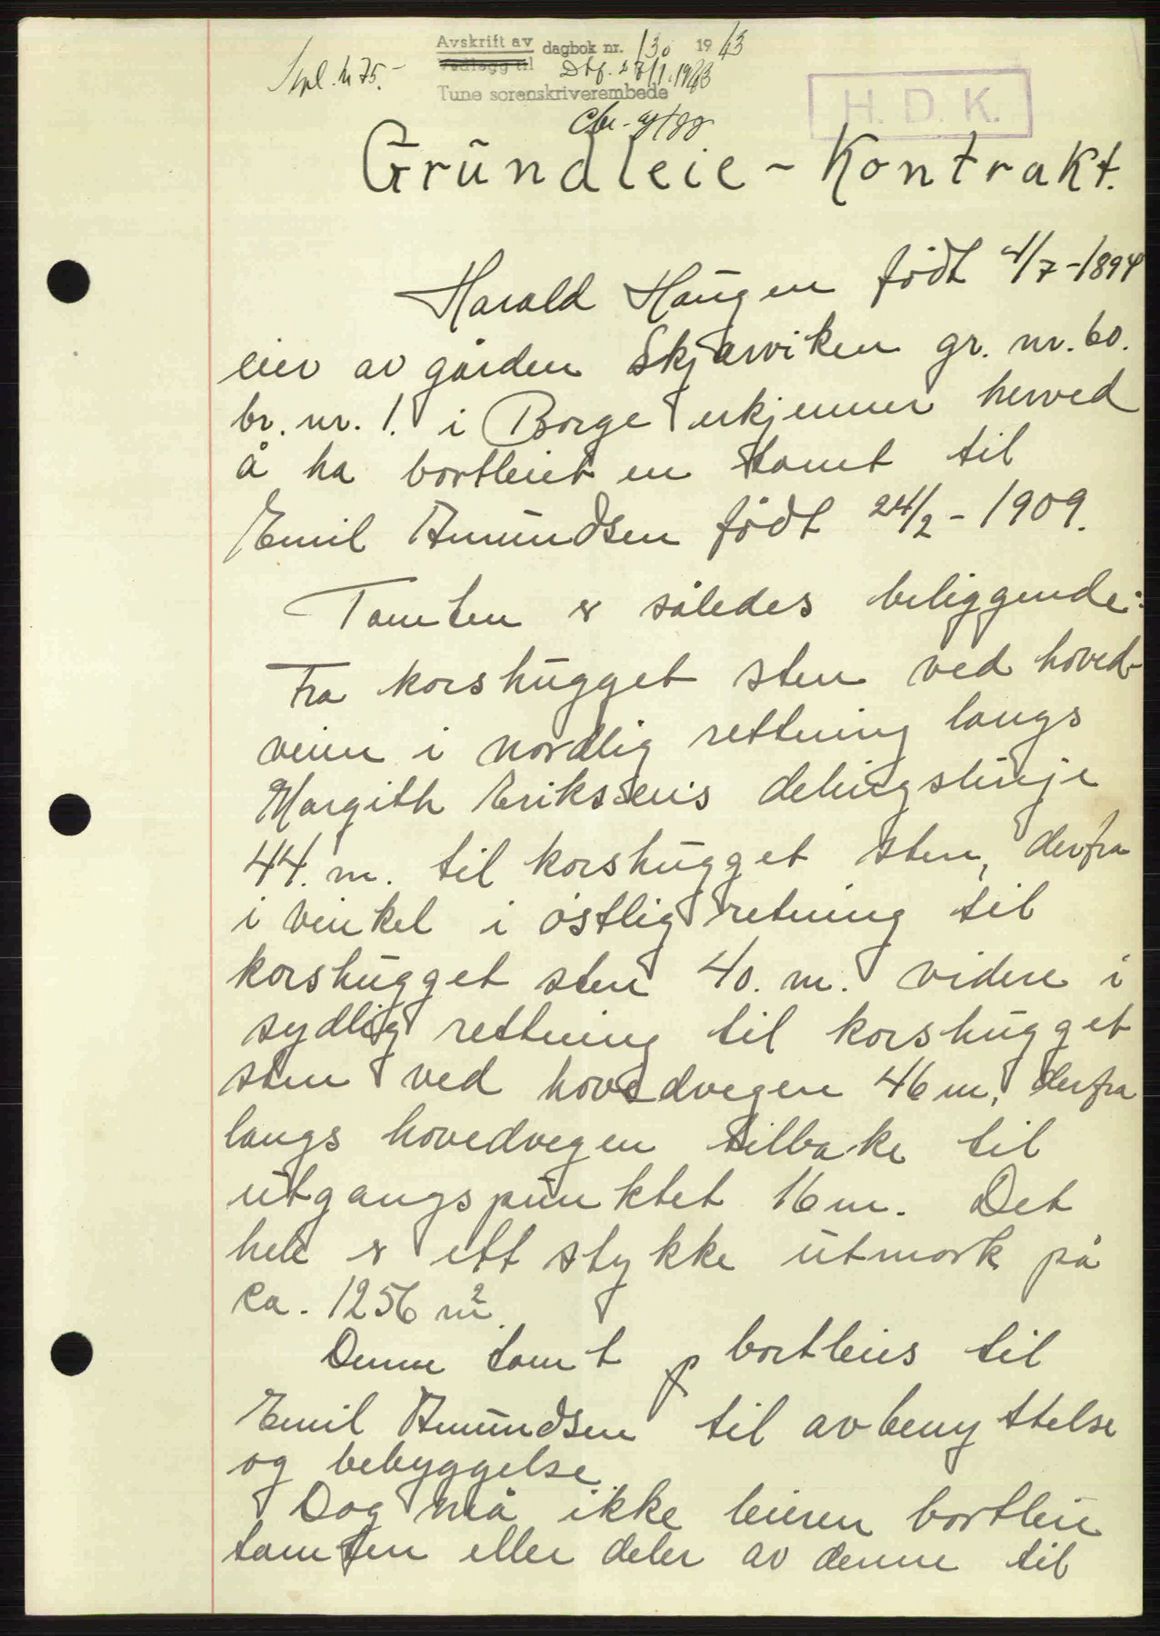 Avskrift av dagbok nr. 130 1943
Vedlegg til Dbf. 27/1.1943
Tune sorenskriverembede
H. D. K.
Grundleie - Kontrakt.
Harald Haugen født 4/7-1894
eier av gården Skjærviken gr. nr. 60.
br. nr. 1. i Borge erkjenner herved
å ha bortleiet en tomt til
Emil Amundsen født 24/2 - 1909.
Tomten er således beliggende:
Fra korshugget sten ved hoved-
veien i nordlig rettning langs
Margith Eriksens delingslinje
44. m. til korshugget sten, derfra
i vinkel i østlig retning til
korshugget sten 40. m. videre i
sydlig rettning til korshugget
sten ved hovedvegen 46 m, derfra
langs hovedvegen tilbake til
utgangspunktet 16 m. Det
hele er ett stykke utmark på
ca. 1256 m².
Denne tomt bortleies til
Emil Amundsen til avbenyttelse
og bebyggelse.
Dog må ikke leieren bortleie
tomten eller deler av denne til